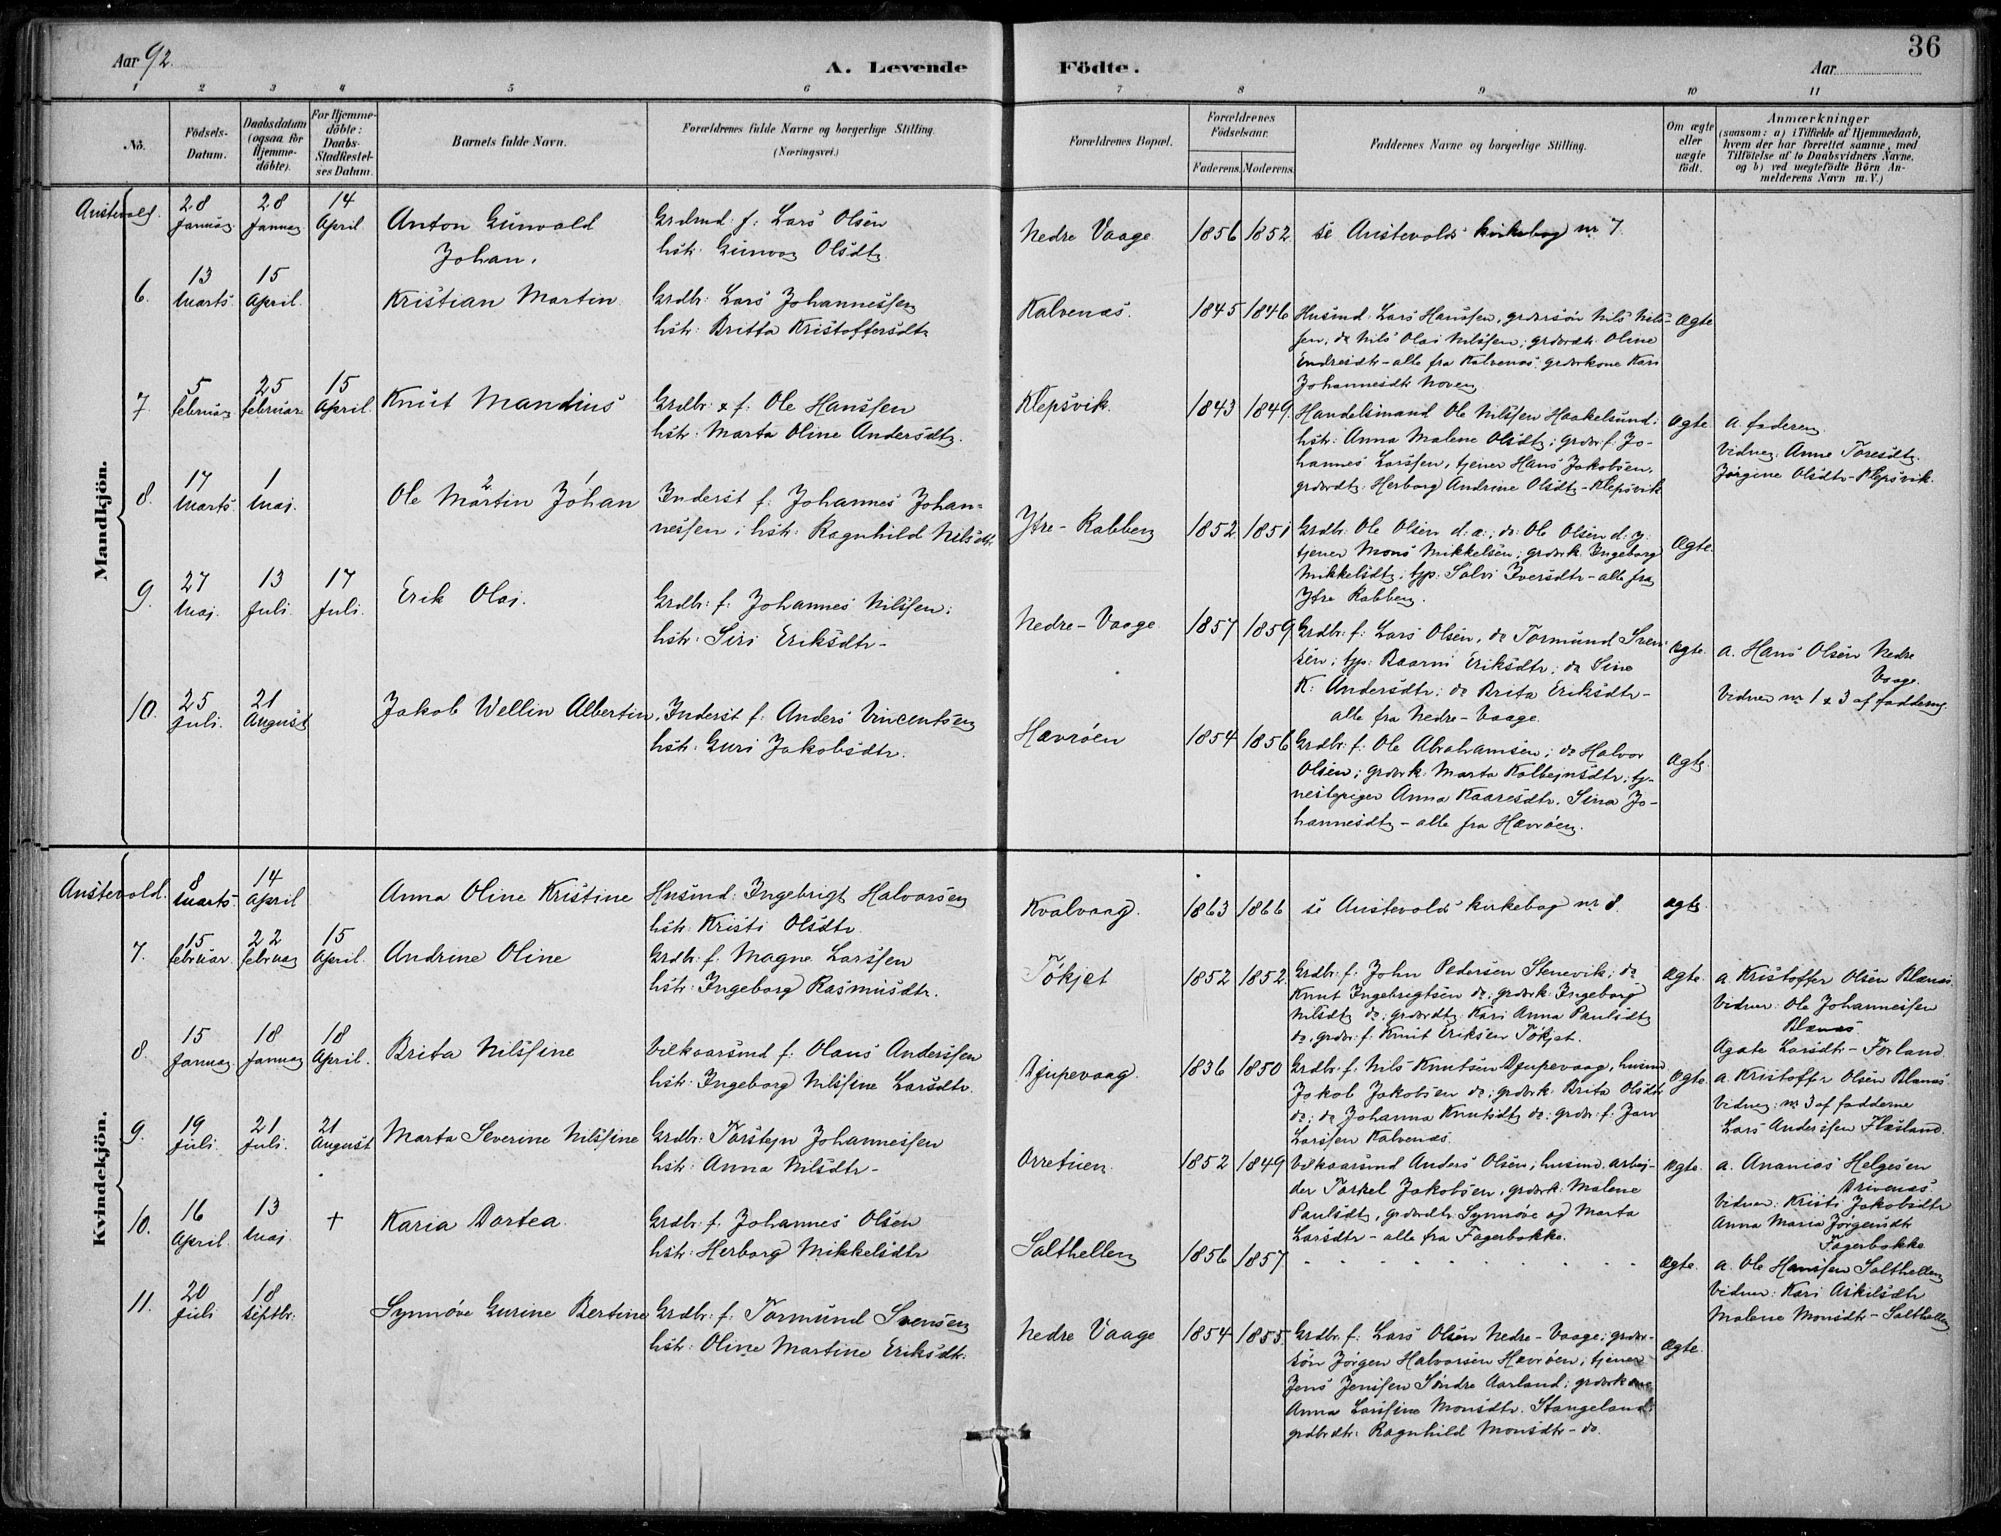 36
Aar 92.
A. Levende
Födte.
Aar
1 2 3 4 5 6 7 8 9 10 11
No.
Födsels-
Datum.
Daabsdatum
(ogsaa for
Hjemme-
döbte).
For Hjemme-
döbte:
Daabs-
Stadfæstel-
ses Datum.
Barnets fulde Navn.
Forældrenes fulde Navne og borgerlige Stilling.
(Næringsvei.)
Forældrenes Bopæl.
Forældrenes
Födselsaar.
Faderens. Moderens.
Faddernes Navne og borgerlige Stilling.
Om ægte
eller
uægte
födt.
Anmærkninger
(saasom: a) i Tilfælde af Hjemmedaab,
hvem der har forrettet samme, med
Tilföielse af to Daabsvidners Navne,
og b) ved uægtefödte Börn An-
melderens Navn m. V.)
Mandkjön.
Austevold.
28
Januar
28
Januar
14
April.
Anton Gunvald
Johan.
Grdmd: f: Lars Olsen
hstr: Gunvor Olsdtr.
Nedre Vaage
1856 1852
se Austevolds kirkebog nr 7.
6.
13
Marts
15
April.
Kristian Martin
Grdbr: Lars Johannessen
hstr: Britta Kristoffersdtr
Kalvenæs.
1845 1846
Husmd: Lars Hanssen, grdbrsøn Nils Nils-
sen, do Nils Olai Nilssen; grdbrdtr Oline
Endresdtr - alle fra Kalvenæs. grdbrkone Kari
Johannesdtr
Ægte
7.
5
februar
25
februar
15
April.
Knut Mandius
Grdbr: & f: Ole Hanssen
hstr: Marta Oline Andersdtr.
Klepsvik.
1843 1849.
Handelsmand Ole Nilssen Haakelsund;
hstr: Anna Malene Olsdtr; grdbr f: Jo-
hannes Larssen, tjener Hans Jakobsen,
grdbrdtr: Herborg Andrine Olsdtr - Klepsvik
Ægte.
a. faderen
Vidner: Anne Toresdtr.
Jørgine Olsdtr - Klepsvik.
8.
17
Marts
1
Mai.
Ole Martin Johan
Inderst f: Johannes Johan-
nessen; hstr: Ragnhild Nilsdtr.
Ytre - Rabben
1852 1851
Grdbr: Ole Olsen d: æ:; do: Ole Olsen d: y:
tjener Mons Mikkelsen; grdbrk Ingeborg
Mikkelsdtr; tjp: Salvi Iversdtr - alle fra
Ytre Rabben.
Ægte.
9.
27
Mai.
13
Juli.
17
Juli.
Erik Olai.
Grdbr: f: Johannes Nilssen;
hstr: Siri Eriksdtr -
Nedre - Vaage.
1857 1859
Grdbr: f: Lars Olsen, do Tormund Sven-
sen; tjp: Baarni Eriksdtr; do Sine
K: Andersdtr; do Brita Eriksdtr -
alle fra Nedre - Vaage.
Ægte.
a. Hans Olsen Nedre
Vaage.
Vidner nr 1 & 3 af fadderne
10.
25
Juli.
21
August
Jakob Wellin Albertin.
Inderst f: Anders Vincentsen
hstr: Guri Jakobsdtr.
Hævrøen
1854 1856
Grdbr: f: Ole Abrahamsen; do Halvor
Olsen; grdbrk: Marta Kolbejnsdtr; tj-
nestepiger Anna Kaaresdtr. Sina Jo-
hannesdtr - alle fra Hævrøen.
Ægte.
Kvindekjön.
Austevold.
8
Marts.
14
April
Anna Oline Kristine
Husmd: Ingebrigt Halvorsen
hstr: Kristi Olsdtr.
Kvalvaag.
1863 1866
se Austevolds kirkebog nr 8.
ægte
7.
15
februar.
22
februar
15
April.
Andrine Oline
Grdbr: f: Magne Larssen
hstr: Ingeborg Rasmusdtr.
Tøkjet
1852 1852.
Grdbr: f: John Pedersen Stenevik; do
Knut Ingebrigtsen do; grdbrk: Ingeborg
Nilsdtr do; grdbrdtr: Kari Anna Paulsdtr
do, grdbr: f: Knut Eriksen Tøkjet.
Ægte.
a. Kristoffer Olsen Blænæs.
Vidner: Ole Johannessen
Blænæs.
Agate Larsdtr - Forland.
8.
15
Januar
18
Januar
18
April.
Brita Nilssine
Vilkaarsmd f: Olaus Anderssen
hstr: Ingeborg Nilssine Larsdtr.
Djupevaag.
1836 1850
Grdbr: f: Nils Knutsen Djupevaag, husmd
Jakob Jakobsen do; grdbrk: Brita Olsdtr
do; do Johanna Knutsdtr do; grdbr: f: Jan
Larssen Kalvenæs.
Ægte.
a. Kristoffr Olsen Blænæs.
Vidner: nr 3 af fadderne
Lars Anderssen Flæsland.
9.
19
Juli.
21
Juli.
21
August
Marta Severine Nilssine
Grdbr: Torstejn Johannessen
hstr: Anna Nilsdtr -
Orretuen.
1852 1849
Vilkaarsmd Anders Olsen; husmd arbej-
der Torkel Jakobsen, grdbrk: Malene
Paulsdtr, grdbrdtr Synnøve og Marta
Larsdtr - alle fra Fagerbokke.
Ægte.
a. Ananias Helgesen
Drivenæs
Vidner: Kristi Jakobsdtr
Anna Maria Jørgensdtr
Fagerbokke
10.
16
April.
13
Mai.
+
Karia Dortea.
Grdbr: f: Johannes Olsen
hstr: Herborg Mikkelsdtr
Salthellen
1856 1857
Ægte.
a. Ole Hanssen Salthellen
Vidner: Kari Askilsdtr
Malene Monsdtr - Salthellen
11.
20
Juli
18
Septbr.
Synnøve Gurine Bertine
Grdbr: f: Tormund Svensen
hstr: Oline Martine Eriksdtr.
Nedre Vaage
1854 1855.
Grdbr: f: Lars Olsen Nedre - Vaage; grdbr-
søn Jørgen Halvorsen Hævrøen; tjener
Jens Jenssen Søndre Aarland; grdbrkone
Anna Larssine Monsdtr. Stangeland;
grdbrdtr: Ragnhild Monsdtr - do.
Ægte.